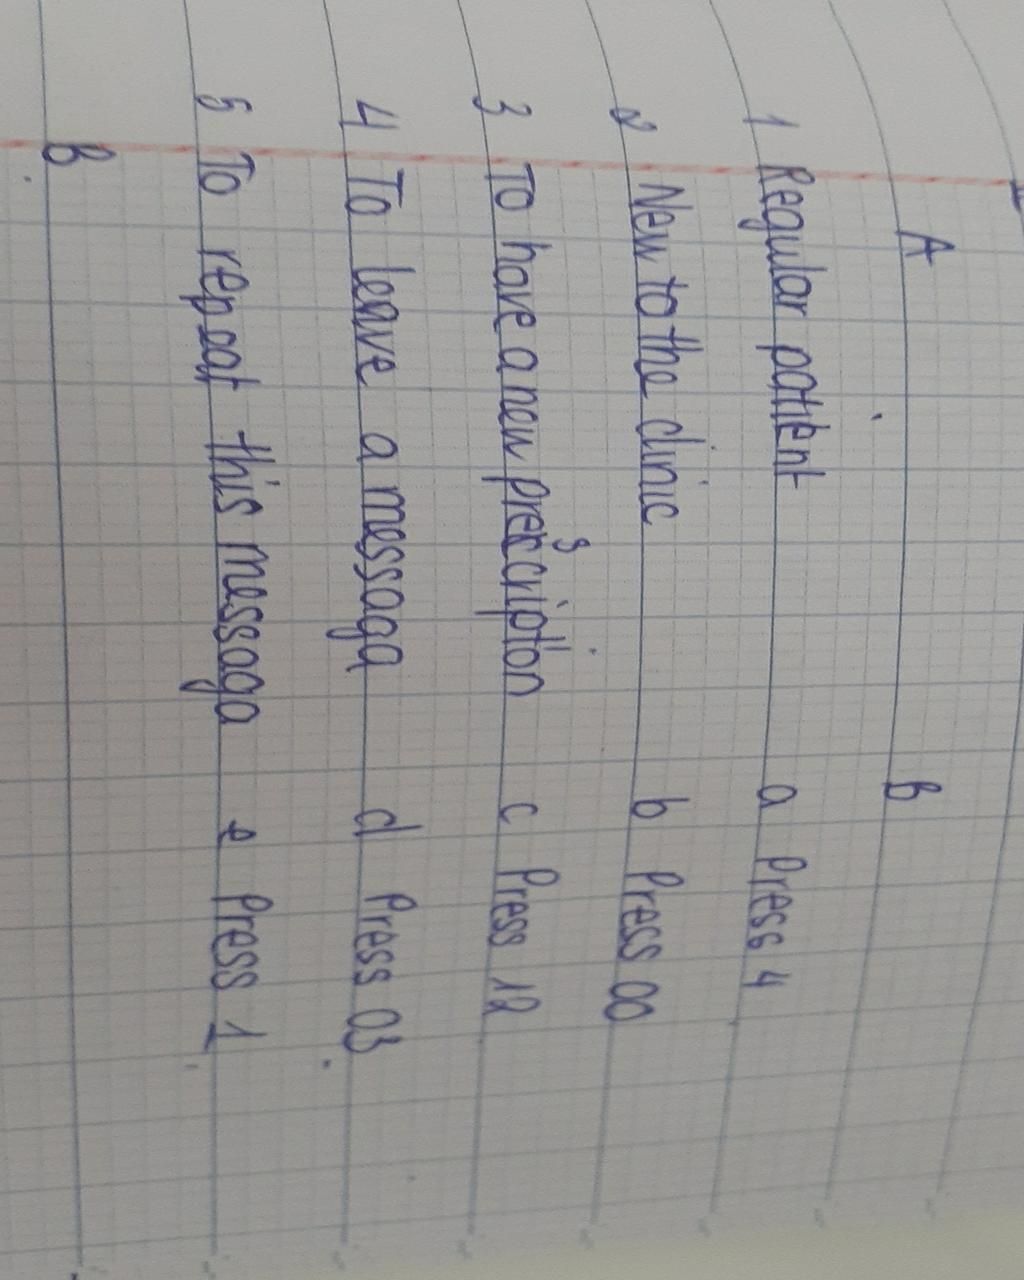 A B
1 Regular patient a Press 4
2 New to the clinic b Press 00
3 To have a new prescription c Press 12
4 To leave a messaga d Press 03
5 To repeat this messaga e Press 1
B